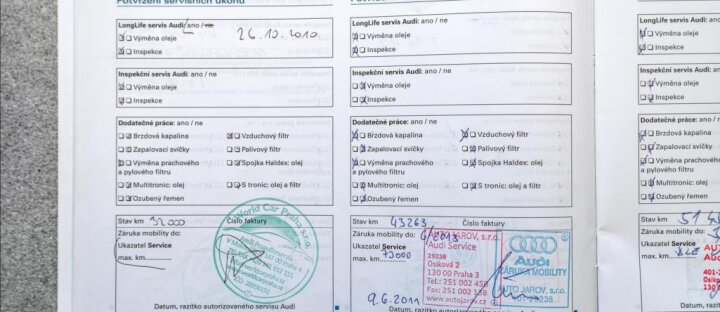 Potvrzení servisních úkonů
LongLife servis Audi: ano / ne
26.10.2010
Výměna oleje
Inspekce
Inspekční servis Audi: ano / ne
Výměna oleje
Inspekce
Dodatečné práce: ano / ne
Brzdová kapalina
Vzduchový filtr
Zapalovací svíčky
Palivový filtr
Výměna prachového
a pylového filtru
Spojka Haldex: olej
Multitronic: olej
S tronic: olej a filtr
Ozubený řemen
Stav km 32000
Číslo faktury
Záruka mobility do:
Ukazatel Service
max. km
World Car Praha s.r.o.
Datum, razítko autorizovaného servisu Audi
LongLife servis Audi: ano / ne
Výměna oleje
Inspekce
Inspekční servis Audi: ano / ne
Výměna oleje
Inspekce
Dodatečné práce: ano / ne
Brzdová kapalina
Vzduchový filtr
Zapalovací svíčky
Palivový filtr
Výměna prachového
a pylového filtru
Spojka Haldex: olej
Multitronic: olej
S tronic: olej a filtr
Ozubený řemen
Stav km 43263
Číslo faktury
Záruka mobility do: 6/2013
Ukazatel Service
max. km 73000
9.6.2011
AUTO JAROV, s.r.o.
Audi Service
29238
Osiková 2
130 00 Praha 3
Tel.: 251 002
Fax: 251 002 138
www.autojarov.cz
Audi
ZÁRUKA MOBILITY
AUTO JAROV, s.r.o.
401-29238
Datum, razítko autorizovaného servisu Audi
LongLife servis
Výměna oleje
Inspekce
Inspekční servis
Výměna oleje
Inspekce
Dodatečné práce:
Brzdová kapalina
Zapalovací svíčky
Výměna prachového
a pylového filtru
Multitronic: olej
Ozubený řemen
Stav km
Záruka mobility do:
Ukazatel Service
max. km